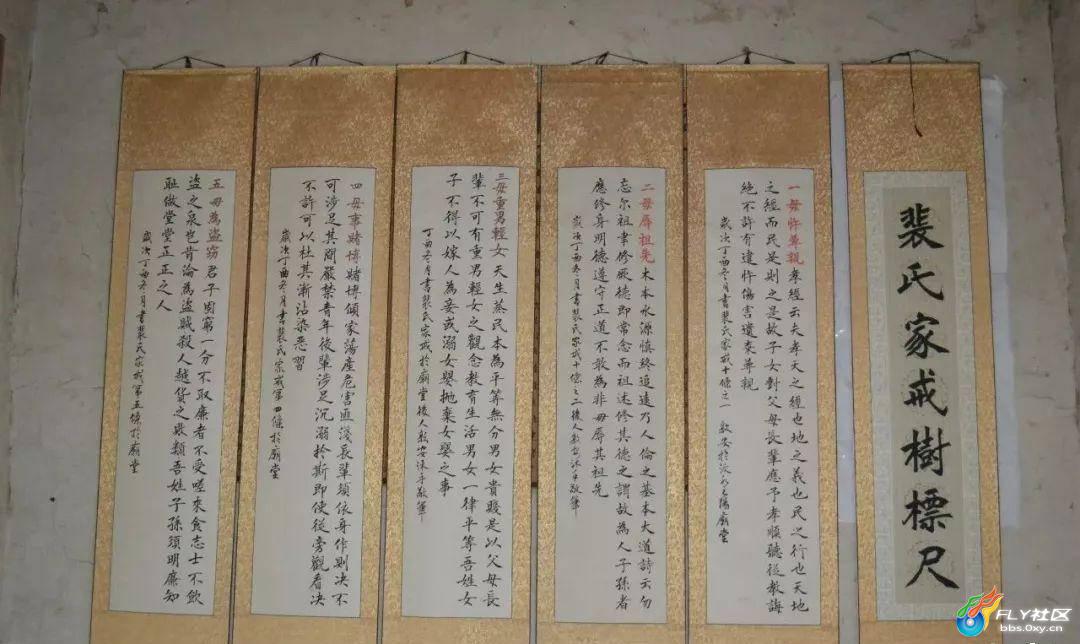 裴氏家戒樹標尺
一毋忤尊親 孝經云夫孝天之經也地之義也民之行也天地
之經而民是則之是故子女對父母長輩應予孝順聽從教誨
絕不許有違忤傷害遺棄尊親
歲次丁酉冬月書裴氏家戒十條之一
二毋辱祖先 木本水源慎終追遠乃人倫之基本大道詩云勿
忘尔祖聿修厥德即常念而祖述修其德之謂故為人子孫者
應修身明德遵守正道不敢為非毋辱其祖先
歲次丁酉冬月書裴氏家戒十條之二後人敬安沐手敬筆
三毋重男輕女 天生蒸民本為平等無分男女貴賤是以父母長
輩不可有重男輕女之觀念教育生活男女一律平等吾姓女
子不得以嫁人為妾或溺女嬰拋棄女嬰之事
丁酉冬月書裴氏家戒於廟堂後人敬安沐手敬筆
四毋事賭博 賭博傾家蕩產危害匪淺長輩須依身作則決不
可涉足其間嚴禁青年後輩涉足沉溺於斯即使從旁觀看决
不許可以杜其漸沾染惡習
歲次丁酉冬月書裴氏家戒第四條於廟堂
五毋為盜竊 君子固窮一分不取廉者不受嗟來食志士不飲
盜之泉也肯淪為盜賊殺人越貨之敗類吾姓子孫須明廉知
耻做堂堂正正之人
歲次丁酉冬月書裴氏家戒第五條於廟堂
FLY社区
bbs.0xy.cn